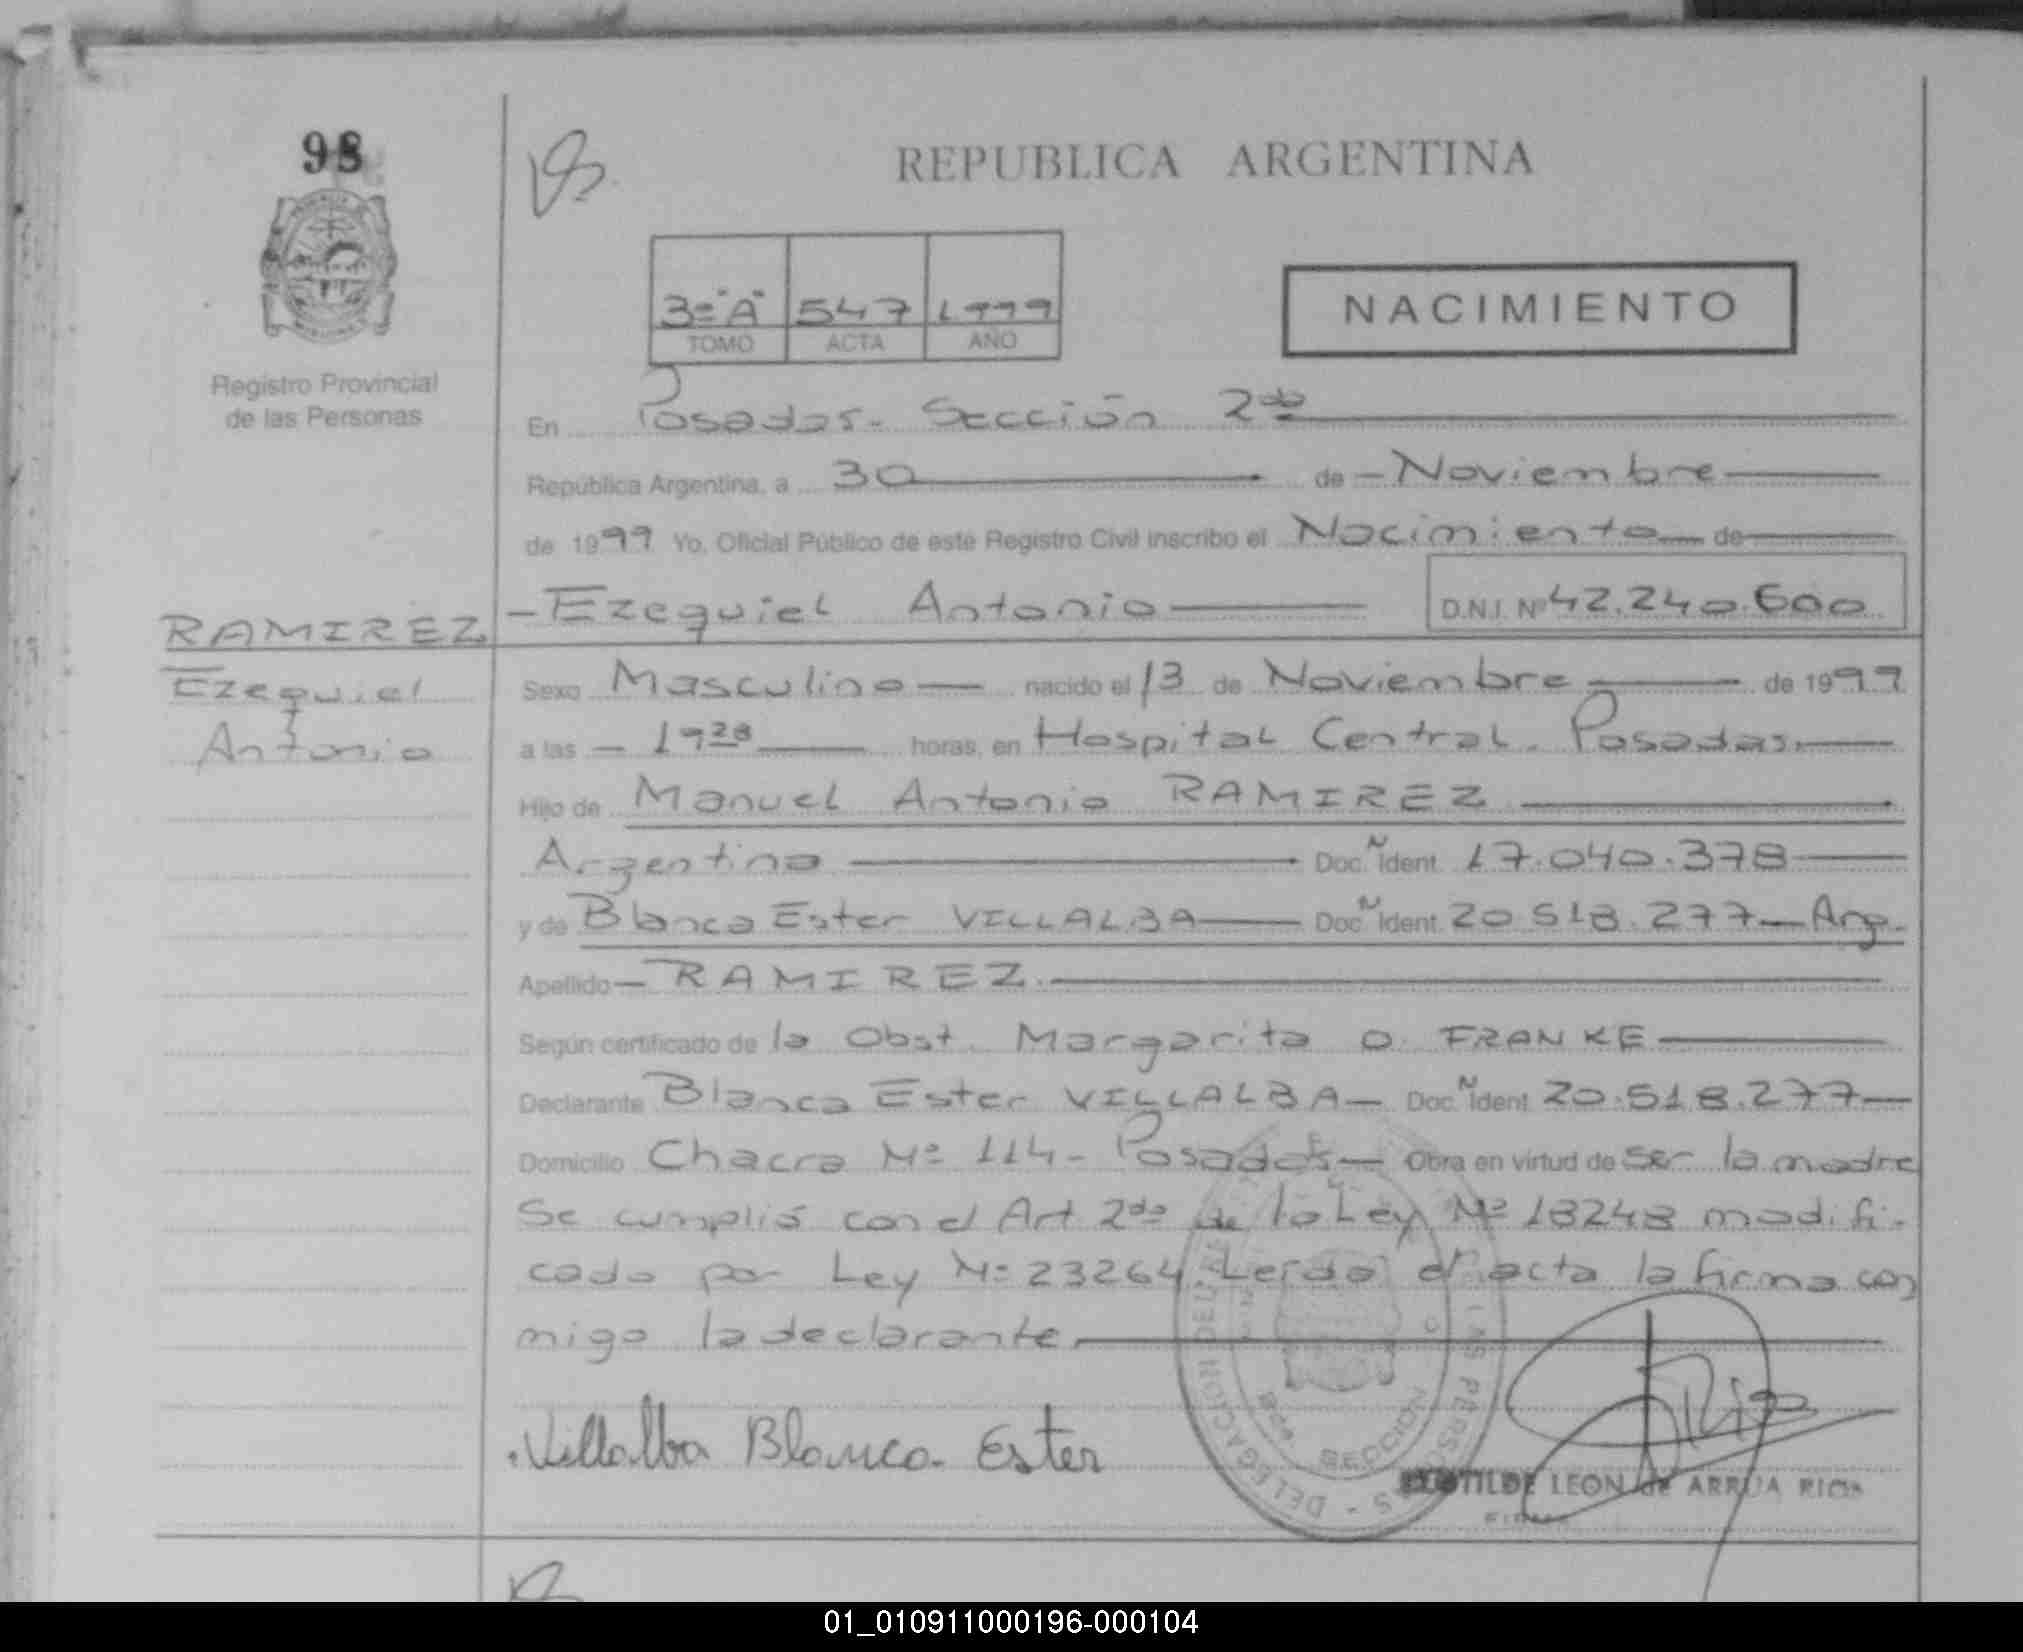 98
REPUBLICA ARGENTINA
3º "A" 547 1999
TOMO ACTA AÑO
NACIMIENTO
Registro Provincial
de las Personas
En Posadas - Sección 2da
República Argentina, a 30 de - Noviembre
de 1999 Yo, Oficial Público de este Registro Civil inscribo el Nacimiento de
RAMIREZ - Ezequiel Antonio D.N.I. Nº 42.240.600
Ezequiel
Antonio
Sexo Masculino nacido el 13 de Noviembre de 1999
a las - 19 28 horas, en Hospital Central. Posadas.
Hijo de Manuel Antonio RAMIREZ
Argentino Doc. Ñ Ident. 17.040.378
y de Blanca Ester VILLALBA Doc. Ñ Ident. 20.518.277 - Arg.
Apellido - RAMIREZ.
Según certificado de la Obst. Margarita O. FRANKE
Declarante Blanca Ester VILLALBA - Doc. Ñ Ident. 20.518.277 -
Domicilio Chacra Nº 114 - Posadas - Obra en virtud de ser la madre
Se cumplió con el Art 2do de la Ley Nº 18248 modifi-
cado por Ley Nº 23264. Leída el acta la firma con
migo la declarante.
Villalba Blanca Ester
DELEGACION DE LAS PERSONAS
SECCION
CLOTILDE LEON de ARRUA RIOS
01_010911000196-000104